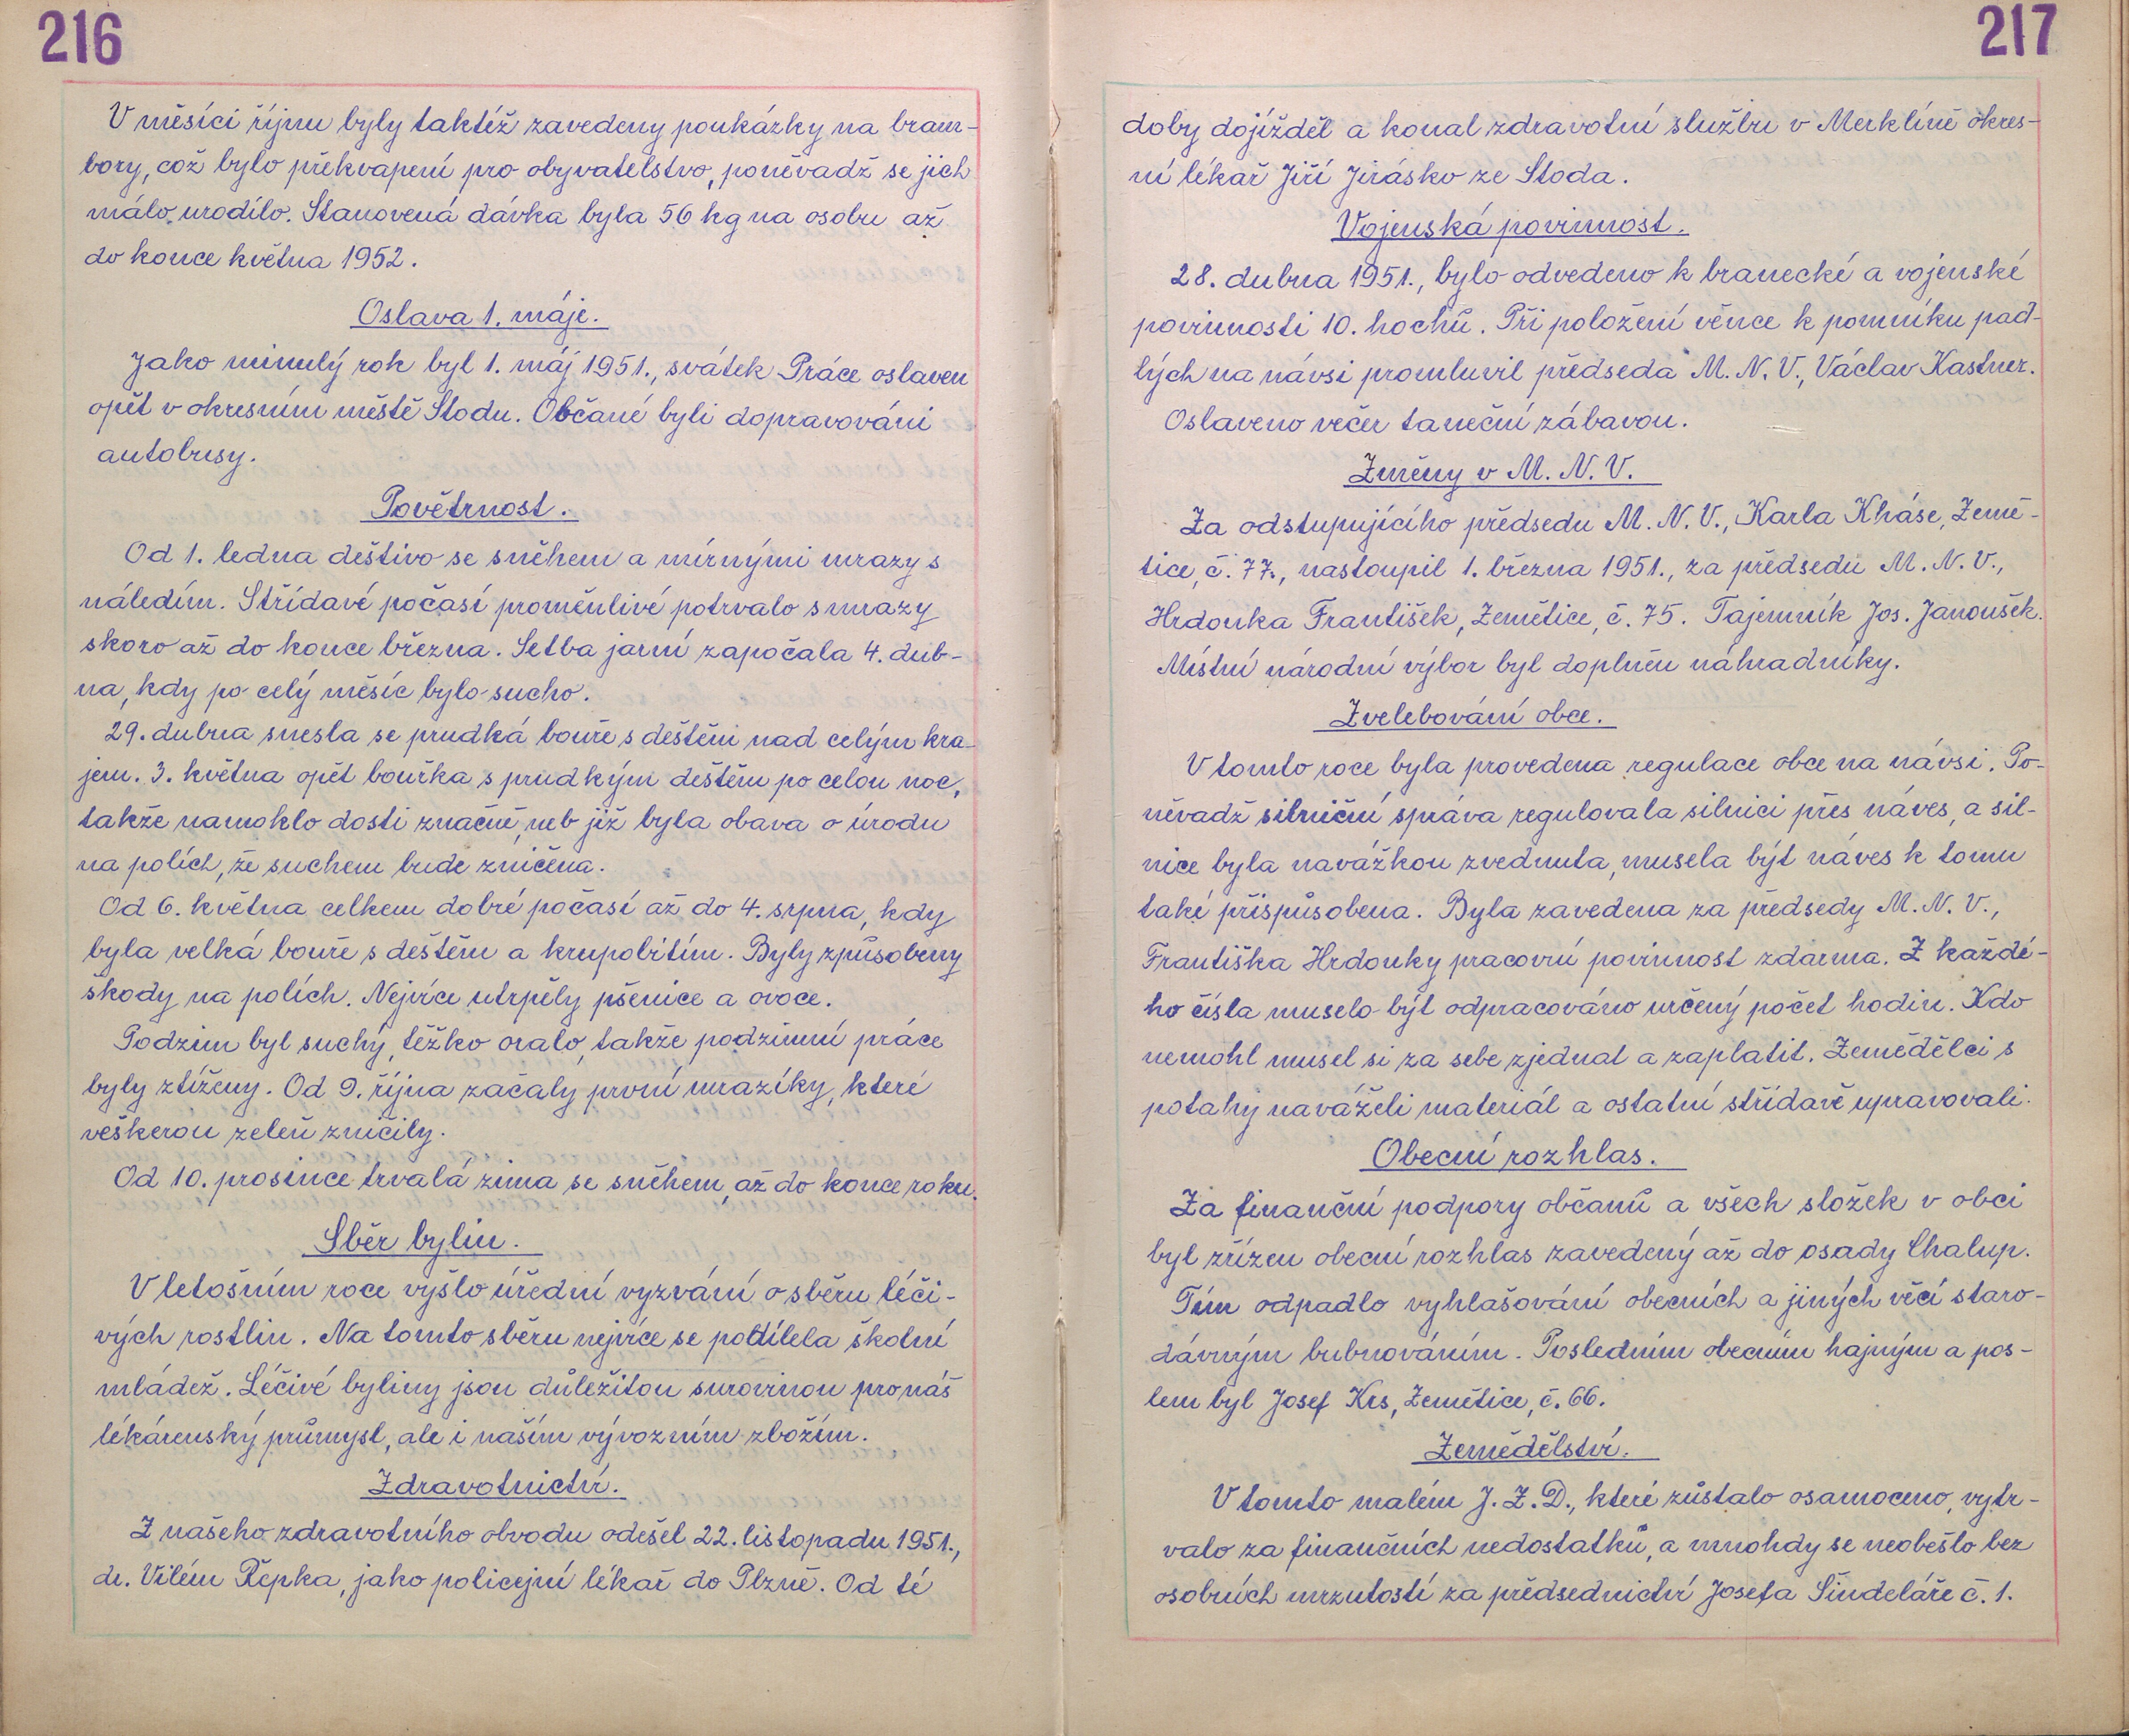 216
V měsíci říjnu byly taktéž zavedeny poukázky na bram-
bory, což bylo překvapení pro obyvatelstvo, poněvadž se jich
málo urodilo. Stanovená dávka byla 56 kg na osobu až
do konce května 1952.
Oslava 1. máje.
Jako minulý rok byl 1. máj 1951., svátek Práce oslaven
opět v okresním městě Stodu. Občané byli dopravováni
autobusy.
Povětrnost.
Od 1. ledna deštivo se sněhem a mírnými mrazy s
náledím. Střídavé počasí proměnlivé potrvalo s mrazy
skoro až do konce března. Setba jarní započala 4. dub-
na, kdy po celý měsíc bylo sucho.
29. dubna snesla se prudká bouře s deštěm nad celým kra-
jem. 3. května opět bouřka s prudkým deštěm po celou noc,
takže namoklo dosti značně, neb již byla obava o úrodu
na polích, že suchem bude zničena.
Od 6. května celkem dobré počasí až do 4. srpna, kdy
byla velká bouře s deštěm a krupobitím. Byly způsobeny
škody na polích. Nejvíce utrpěly pšenice a ovoce.
Podzim byl suchý, těžko oralo, takže podzimní práce
byly ztíženy. Od 9. října začaly první mrazíky, které
veškerou zeleň zničily.
Od 10. prosince trvalá zima se sněhem, až do konce roku.
Sběr bylin.
V letošním roce vyšlo úřední vyzvání o sběru léči-
vých rostlin. Na tomto sběru nejvíce se podílela školní
mládež. Léčivé byliny jsou důležitou surovinou pro náš
lékárenský průmysl, ale i naším vývozním zbožím.
Zdravotnictví.
Z našeho zdravotního obvodu odešel 22. listopadu 1951.,
dr. Vilém Řepka, jako policejní lékař do Plzně. Od té
217
doby dojížděl a konal zdravotní službu v Merklíně okres-
ní lékař Jiří Jirásko ze Stoda.
Vojenská povinnost.
28. dubna 1951., bylo odvedeno k branecké a vojenské
povinnosti 10. hochů. Při položení věnce k pomníku pad-
lých na návsi promluvil předseda M. N. V., Václav Kastner.
Oslaveno večer taneční zábavou.
Změny v M. N. V.
Za odstupujícího předsedu M. N. V., Karla Kháse, Země-
tice, č. 77., nastoupil 1. března 1951., za předsedu M. N. V.,
Hrdonka František, Zemětice, č. 75. Tajemník Jos. Janoušek.
Místní národní výbor byl doplněn náhradníky.
Zvelebování obce.
V tomto roce byla provedena regulace obce na návsi. Po-
něvadž silniční správa regulovala silnici přes náves, a sil-
nice byla navážkou zvednuta, musela být náves k tomu
také přispůsobena. Byla zavedena za předsedy M. N. V.,
Františka Hrdonky pracovní povinnost zdarma. Z každé-
ho čísla muselo být odpracováno určený počet hodin. Kdo
nemohl musel si za sebe zjednat a zaplatit. Zemědělci s
potahy naváželi materiál a ostatní střídavě upravovali.
Obecní rozhlas.
Za finanční podpory občanů a všech složek v obci
byl zřízen obecní rozhlas zavedený až do osady Chalup.
Tím odpadlo vyhlašování obecních a jiných věcí staro-
dávným bubnováním. Posledním obecním hajným a pos-
lem byl Josef Krs, Zemětice, č. 66.
Zemědělství.
V tomto malém J. Z. D., které zůstalo osamoceno, vytr-
valo za finančních nedostatků, a mnohdy se neobešlo bez
osobních mrzutostí za předsednictví Josefa Šindeláře č. 1.